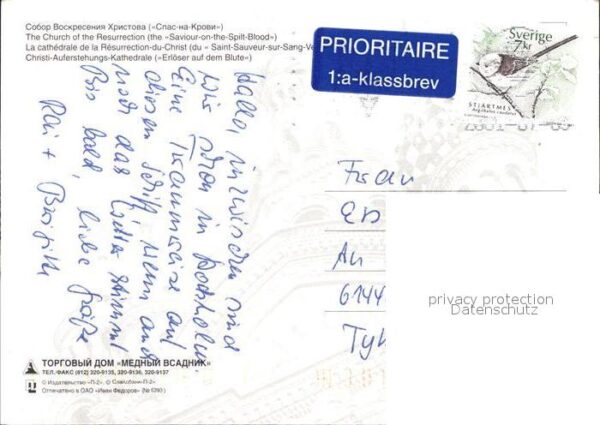 Собор Воскресения Христова («Спас-на-Крови»)
The Church of the Resurrection (the «Saviour-on-the-Spilt-Blood»)
La cathédrale de la Résurrection-du-Christ (du « Saint-Sauveur-sur-Sang-Ve
Christi-Auferstehungs-Kathedrale («Erlöser auf dem Blute»)
PRIORITAIRE
1:a-klassbrev
Sverige
7kr
STJÄRTMES
Aegithalos caudatus
Hallo, inzwischen sind
wir schon in Stockholm
Eine Traumreise auf
diesem Schiff wenn auch
noch das Wetter stimmt
Bis bald, liebe Grüße
+ Brigitte
Frau
An
6144
privacy protection
Datenschutz
ТОРГОВЫЙ ДОМ «МЕДНЫЙ ВСАДНИК»
ТЕЛ./ФАКС (812) 320-9135, 320-9136, 320-9137
© Издательство «П-2», ©
Отпечатано в ОАО «Иван Федоров» (№ 6390)